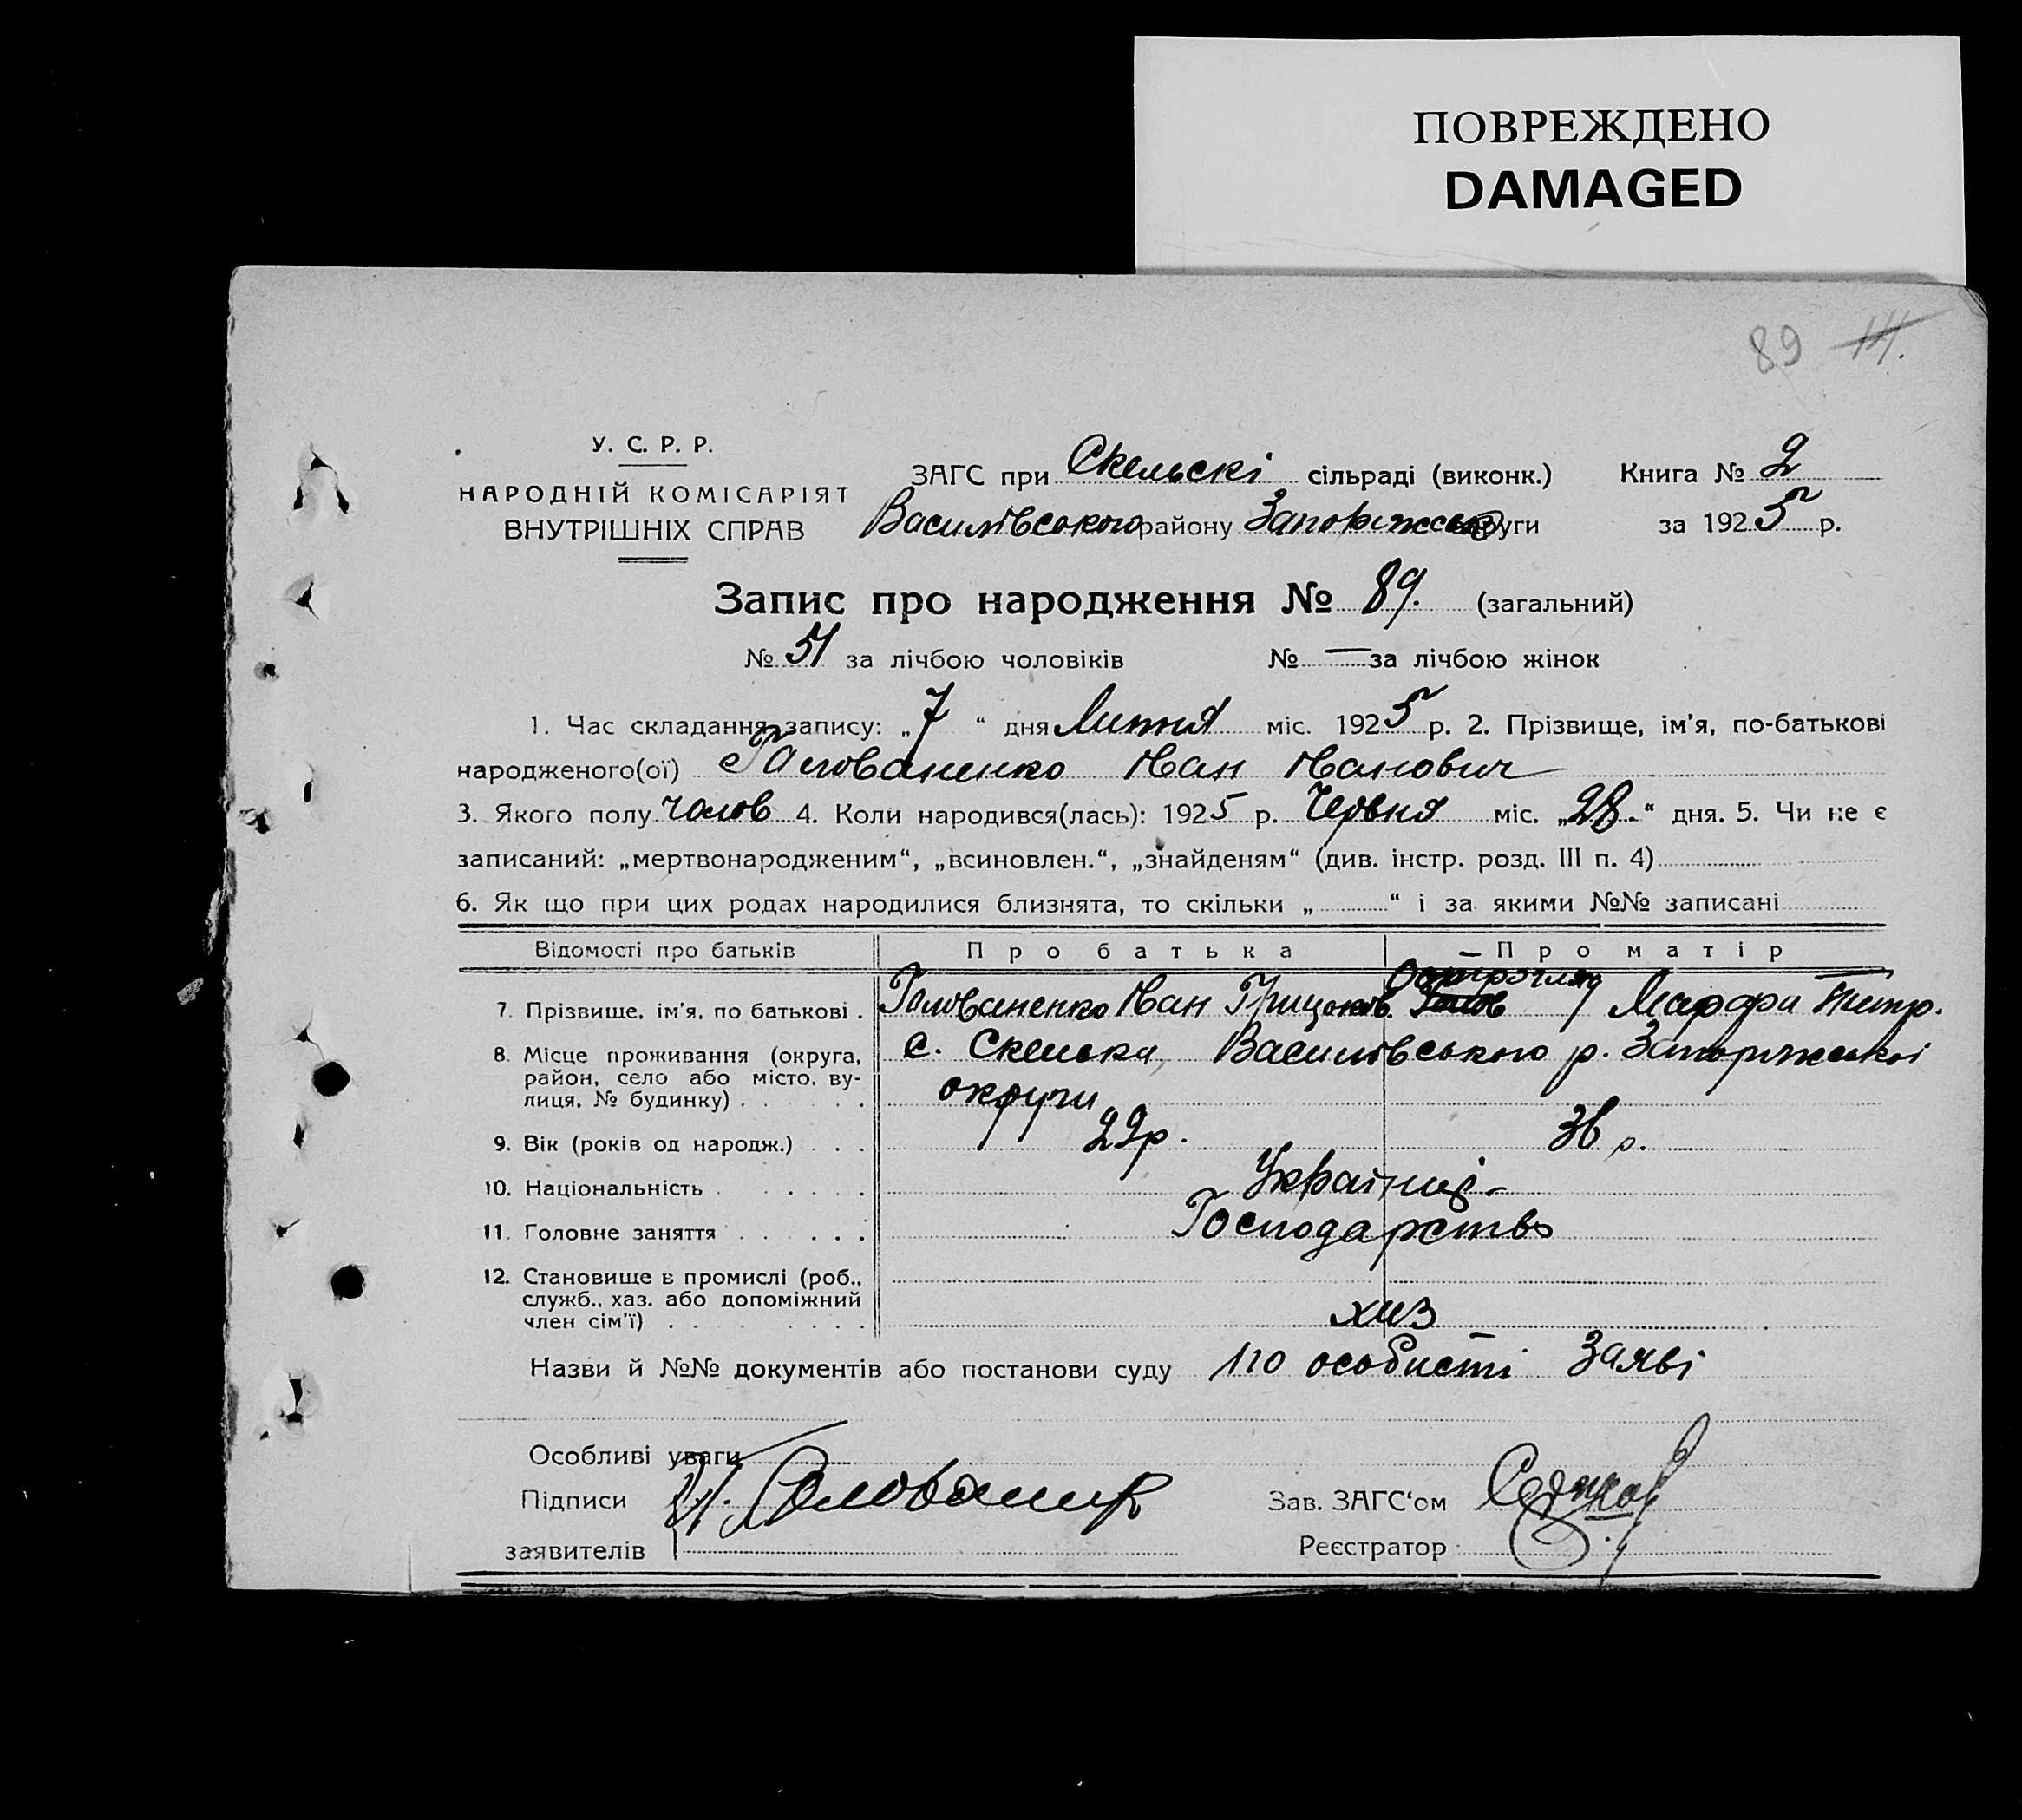 ПОВРЕЖДЕНО
DAMAGED
89
У. С. Р. Р.
НАРОДНІЙ КОМІСАРІЯТ
ВНУТРІШНІХ СПРАВ
ЗАГС при Скельскі сільраді (виконк.) Книга № 2
Василівського району Запоріжсько округи за 1925 р.
Запис про народження № 89. (загальний)
№ 51 за лічбою чоловіків № — за лічбою жінок
1. Час складання запису: „7“ дня Липня міс. 1925 р. 2. Прізвище, ім'я, по-батькові
народженого(ої) Голованенко Іван Іванович
3. Якого полу чолов 4. Коли народився(лась): 1925 р. Червня міс. „28.“ дня. 5. Чи не є
записаний: „мертвонародженим“, „всиновлен.“, „знайденям“ (див. інстр. розд. III п. 4)
6. Як що при цих родах народилися близнята, то скільки „ “ і за якими №№ записані
Відомості про батьків Про батька Про матір
7. Прізвище, ім'я, по батькові . Голованенко Іван Грицьков. Марфи Петр.
8. Місце проживання (округа, с. Скелька, Василівського р. Запоріжської
район, село або місто, ву-
лиця, № будинку) . . . . округи
9. Вік (років од народж.) . . . 29р. 36 р.
10. Національність . . . . . Українці
11. Головне заняття . . . . . Господарство
12. Становище в промислі (роб.,
служб., хаз. або допоміжний
член сім'ї) . . . . . . . хиз
Назви й №№ документів або постанови суду по особисті заяві
Особливі уваги
Підписи
Зав. ЗАГС'ом
заявителів
Реєстратор